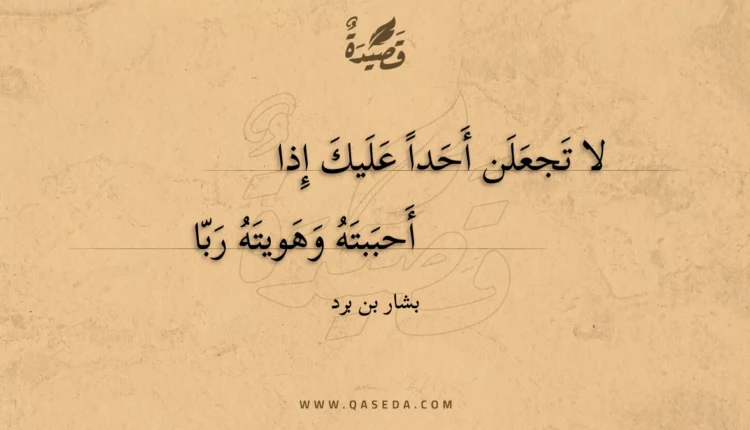 قَصِيْدَةٌ
لا تَجعَلَن أَحَداً عَلَيكَ إِذا
أَحبَبتَهُ وَهَويتَهُ رَبّا
بشار بن برد
WWW.QASEDA.COM